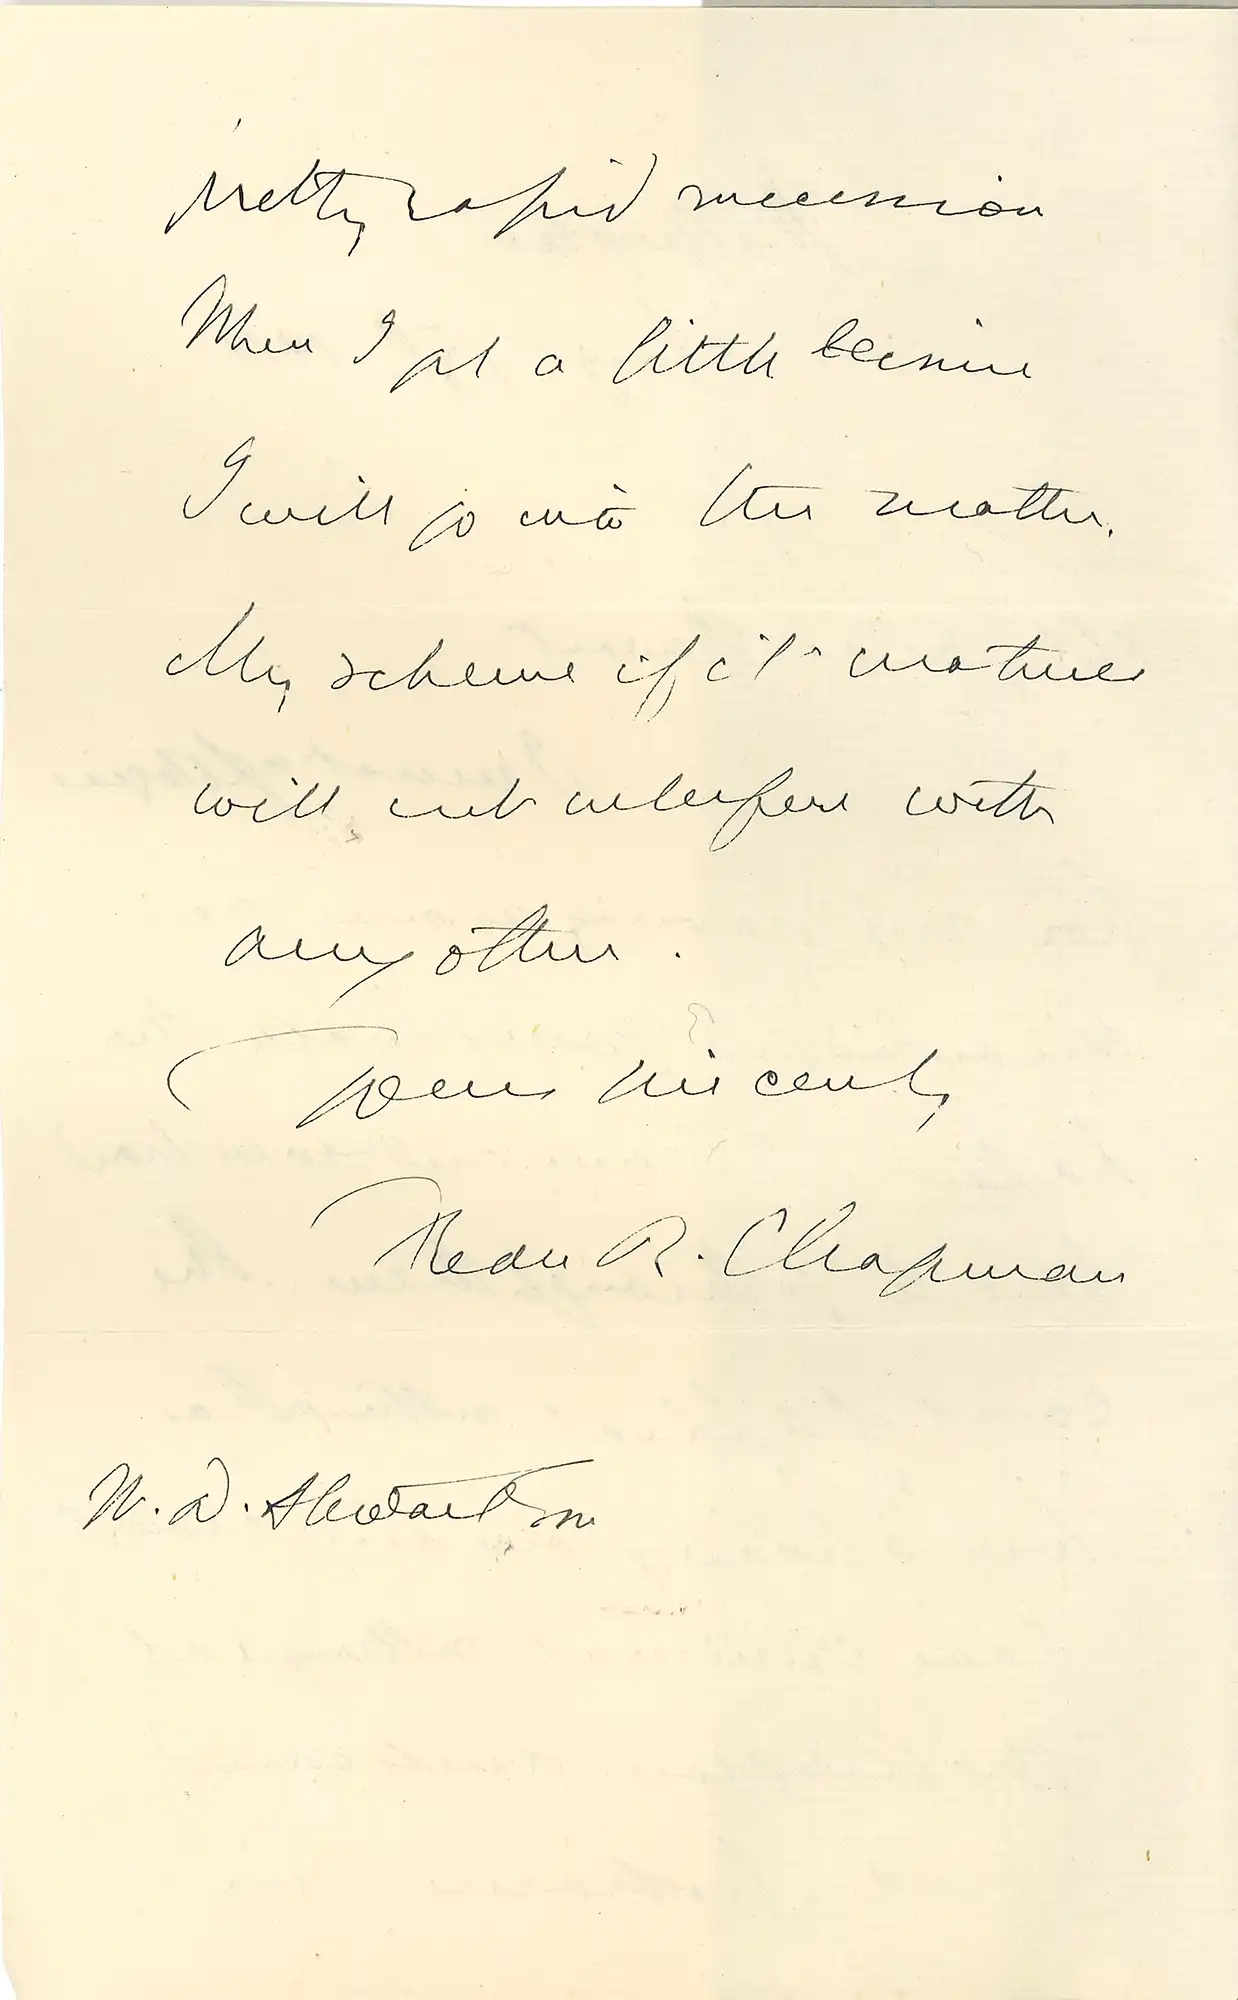 pretty rapid succession
When I get a little leisure
I will go into the matter.
My scheme if it matures
will not interfere with
any other.
Yours sincerely
Fredk R. Chapman
W. D. Stewart Esq